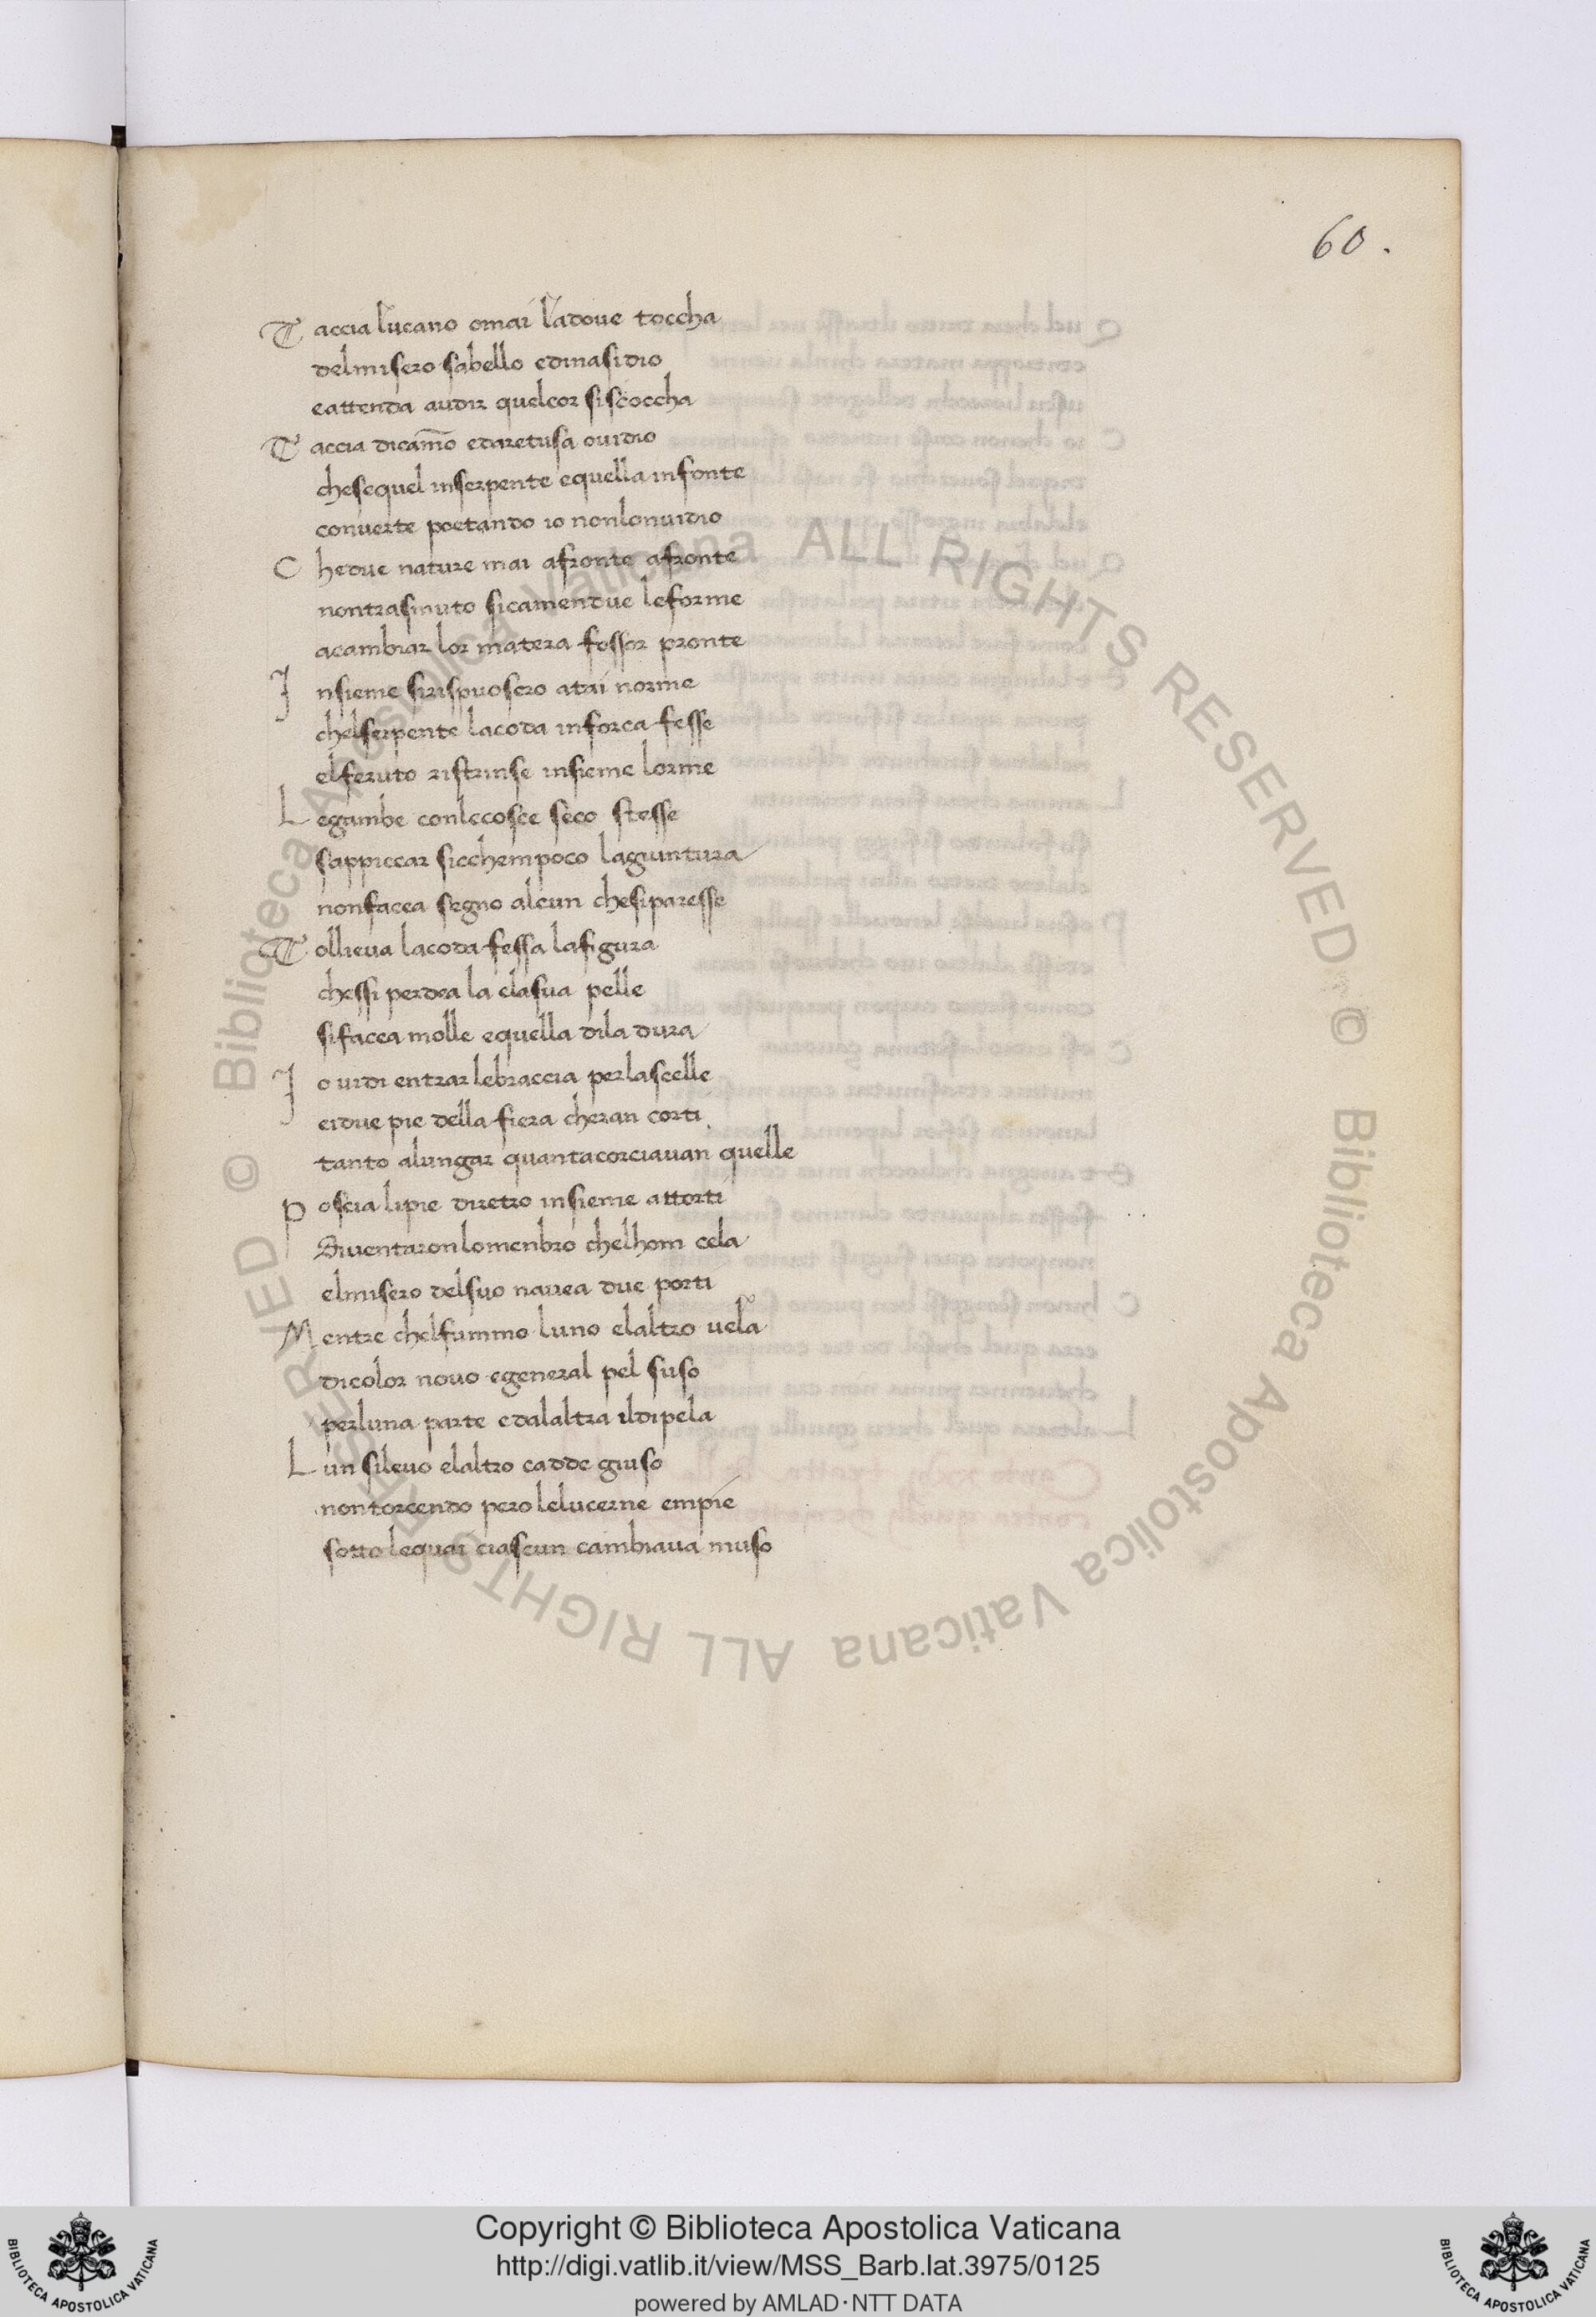 60.
Taccia lucano omai ladoue toccha
delmisero sabello edinasidio
eattenda audir quelcor siscoccha
Taccia dicam̄o edaretusa ouidio
chesequel inserpente equella infonte
conuerte poetando io nonlonuidio
Chedue nature mai afronte afronte
nontrasmuto sicamendue leforme
acambiar lor matera fossor pronte
Insieme sirispuosero atai norme
chelserpente lacoda inforca fesse
elferuto ristrinse insieme lorme
Legambe conlecosce seco stesse
sappiccar sicchempoco lagiuntura
nonfacea segno alcun chesiparesse
Tollieua lacoda fessa lafigura
chessi perdea la elasua pelle
sifacea molle equella dila dura
Io uidi entrar lebraccia perlascelle
eidue pie della fiera cheran corti
tanto alungar quantacorciauan quelle
Poscia lipie diretro insieme attorti
Diventaronlomenbro chelhom cela
elmisero delsuo nauea due porti
Mentre chelfummo luno elaltro uela
dicolor nouo egeneral pel suso
perluna parte edalaltra ildipela
Lun sileuo elaltro cadde giuso
nontorcendo pero lelucerne empie
sotto lequai ciascun cambiaua muso
© Biblioteca Apostolica Vaticana ALL RIGHTS RESERVED © Biblioteca Apostolica Vaticana ALL RIGHTS RESERVED
Copyright © Biblioteca Apostolica Vaticana
http://digi.vatlib.it/view/MSS_Barb.lat.3975/0125
powered by AMLAD·NTT DATA
BIBLIOTECA APOSTOLICA VATICANA
BIBLIOTECA APOSTOLICA VATICANA